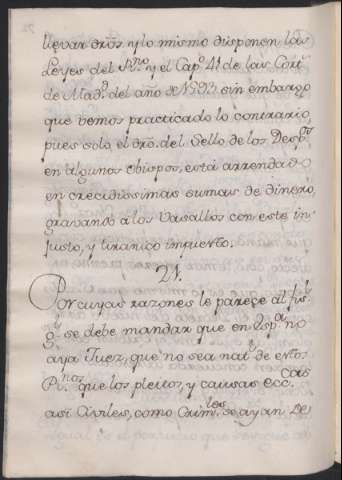 llevar dr̃os y lo mismo disponen las
Leyes del R.no y el Cap.o 41 de las Cort.s
de Mad.d del año de 1593 sin embargo
que vemos practicado lo contrario,
pues solo el dro. del Sello de los Desp.s
en algunos obispos, està arrendado
en crecidissimas sumas de dinero,
gravando à los Vasallos con este in-
justo, y tiranico impuesto.
21.
Por cuyas razones le pareçe al fis.l
g.l se debe mandar que en Esp.a no
aya Juez, que no sea nat.l de estos
R.nos que los pleitos, y causas ecc.cas
asi Civiles, como Crim.les se ayan de